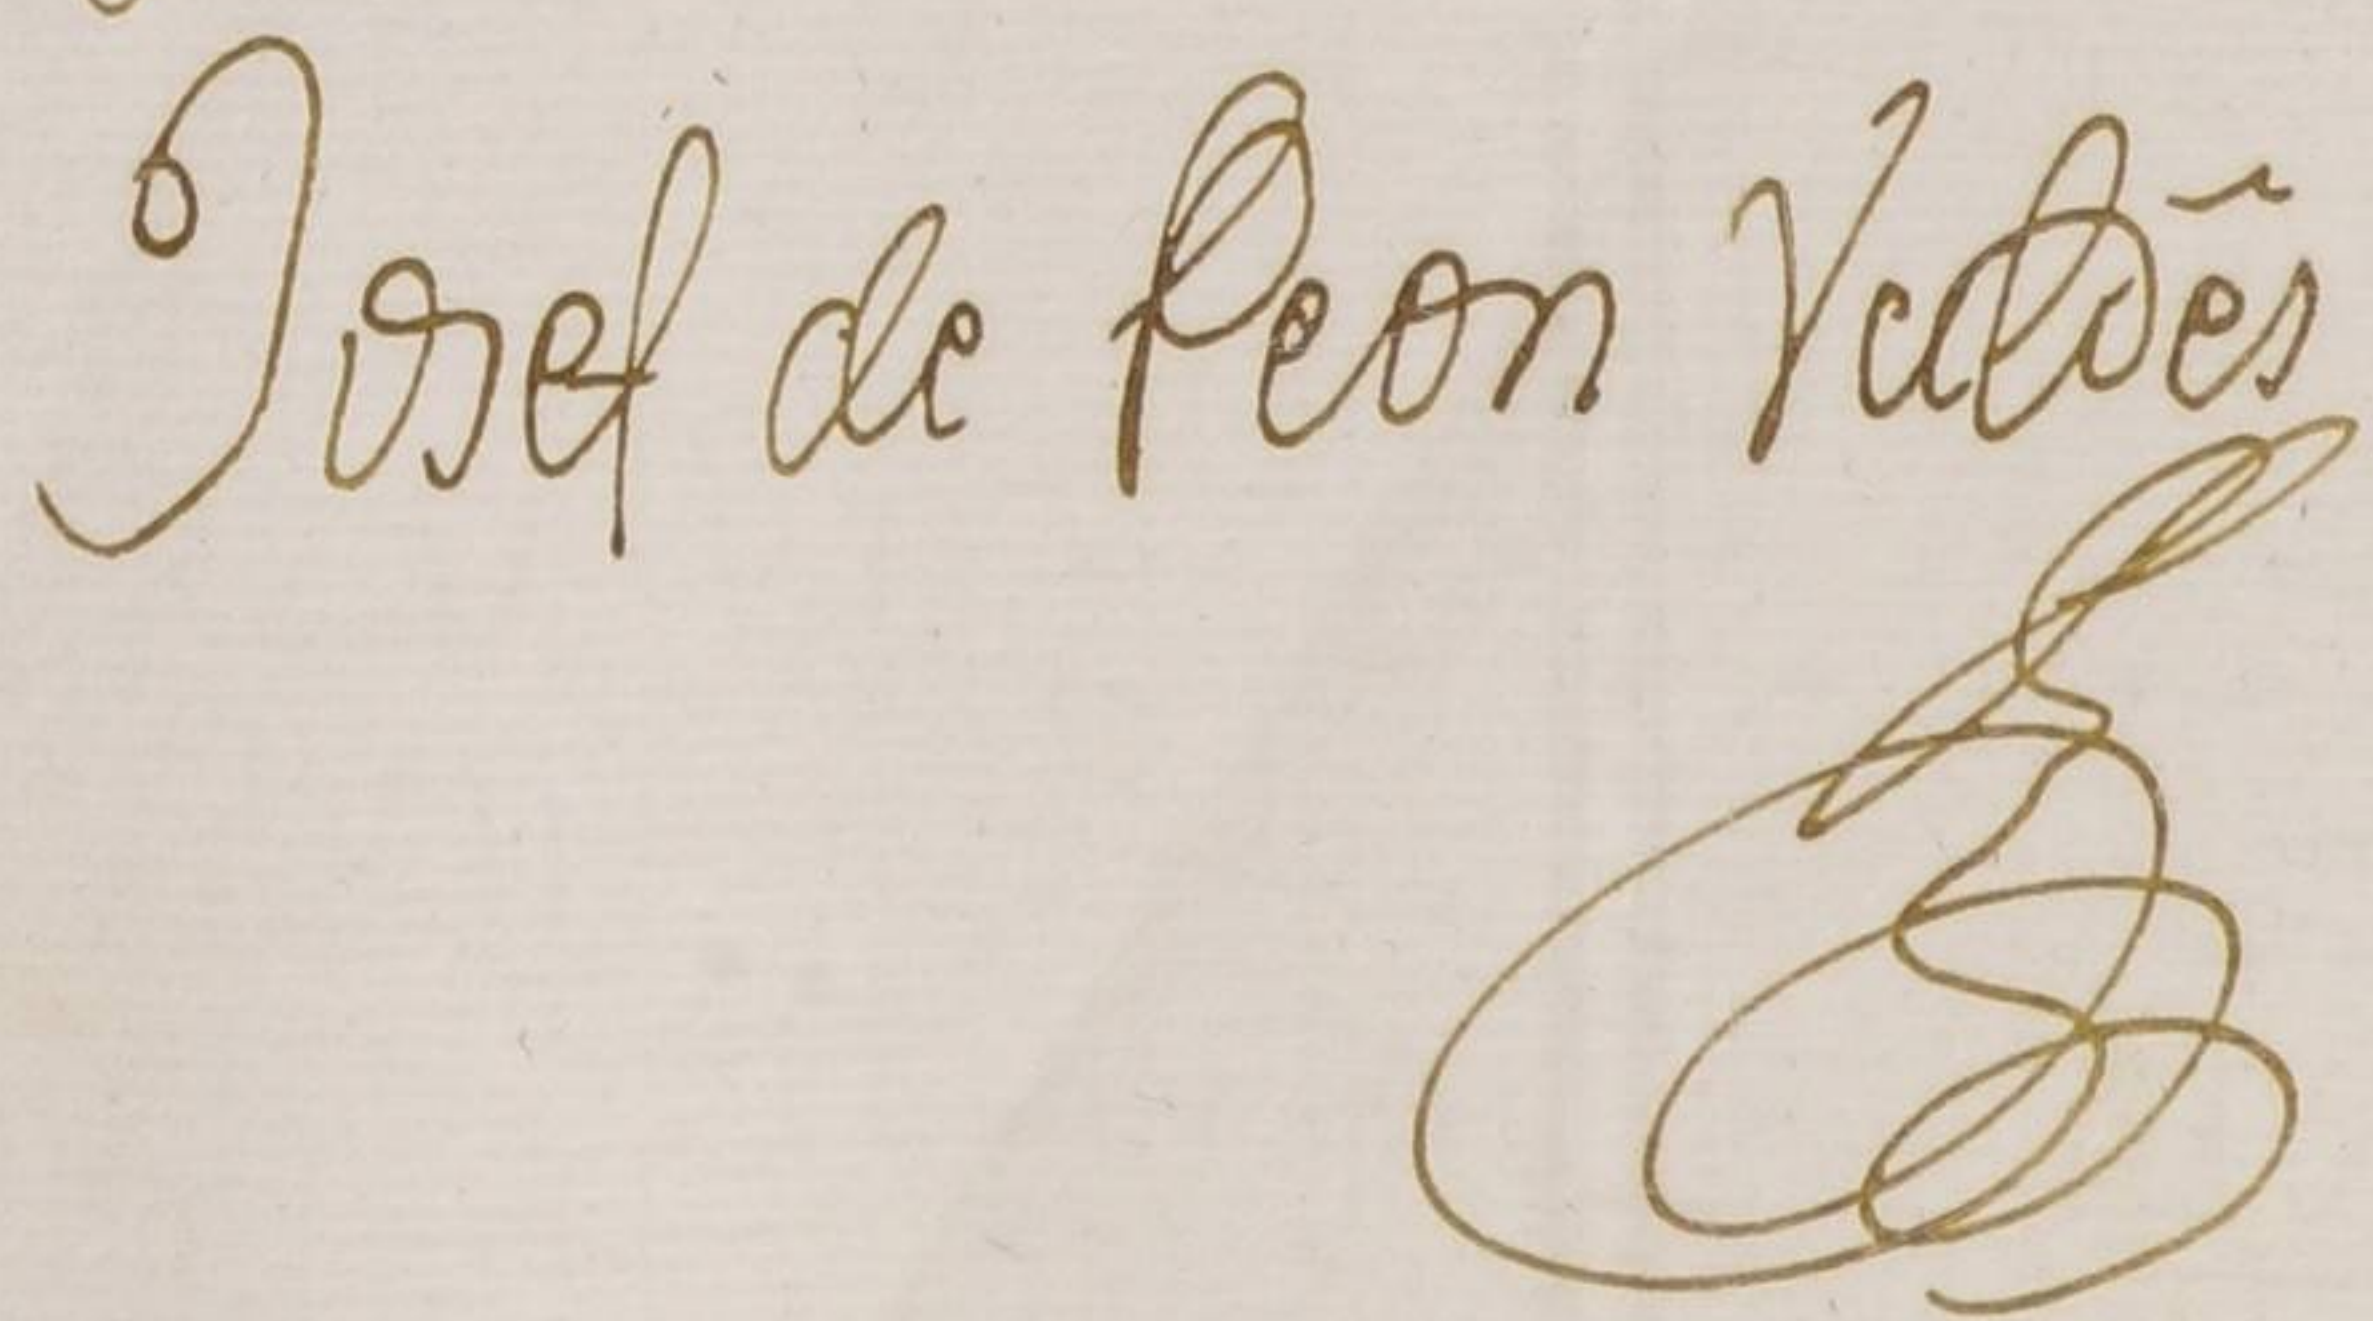 Josef de Peon Valdês